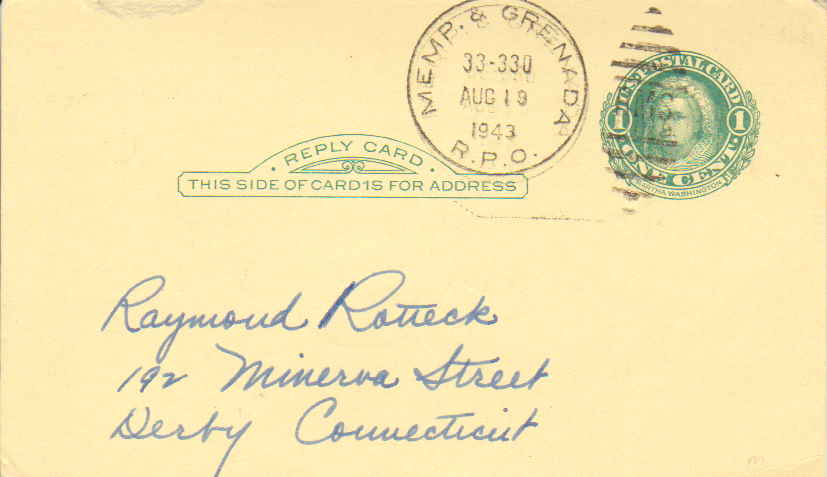 MEMP. & GRENADA
33-330
AUG 19
1943
R.P.O.
U.S. POSTAL CARD
1 1
ONE CENT
MARTHA WASHINGTON
· REPLY CARD ·
THIS SIDE OF CARD IS FOR ADDRESS
Raymond Rotteck
192 Minerva Street
Derby Connecticut